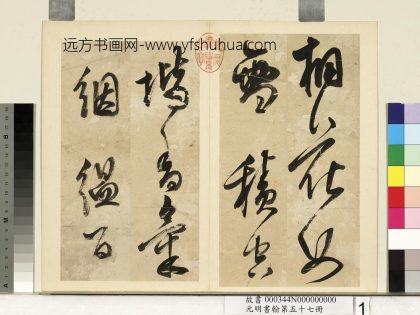 远方书画网-www.yfshuhua.com
花如
雪積空
香氣
絪縕百
故書 000344N000000000
元明書翰第五十七冊
1